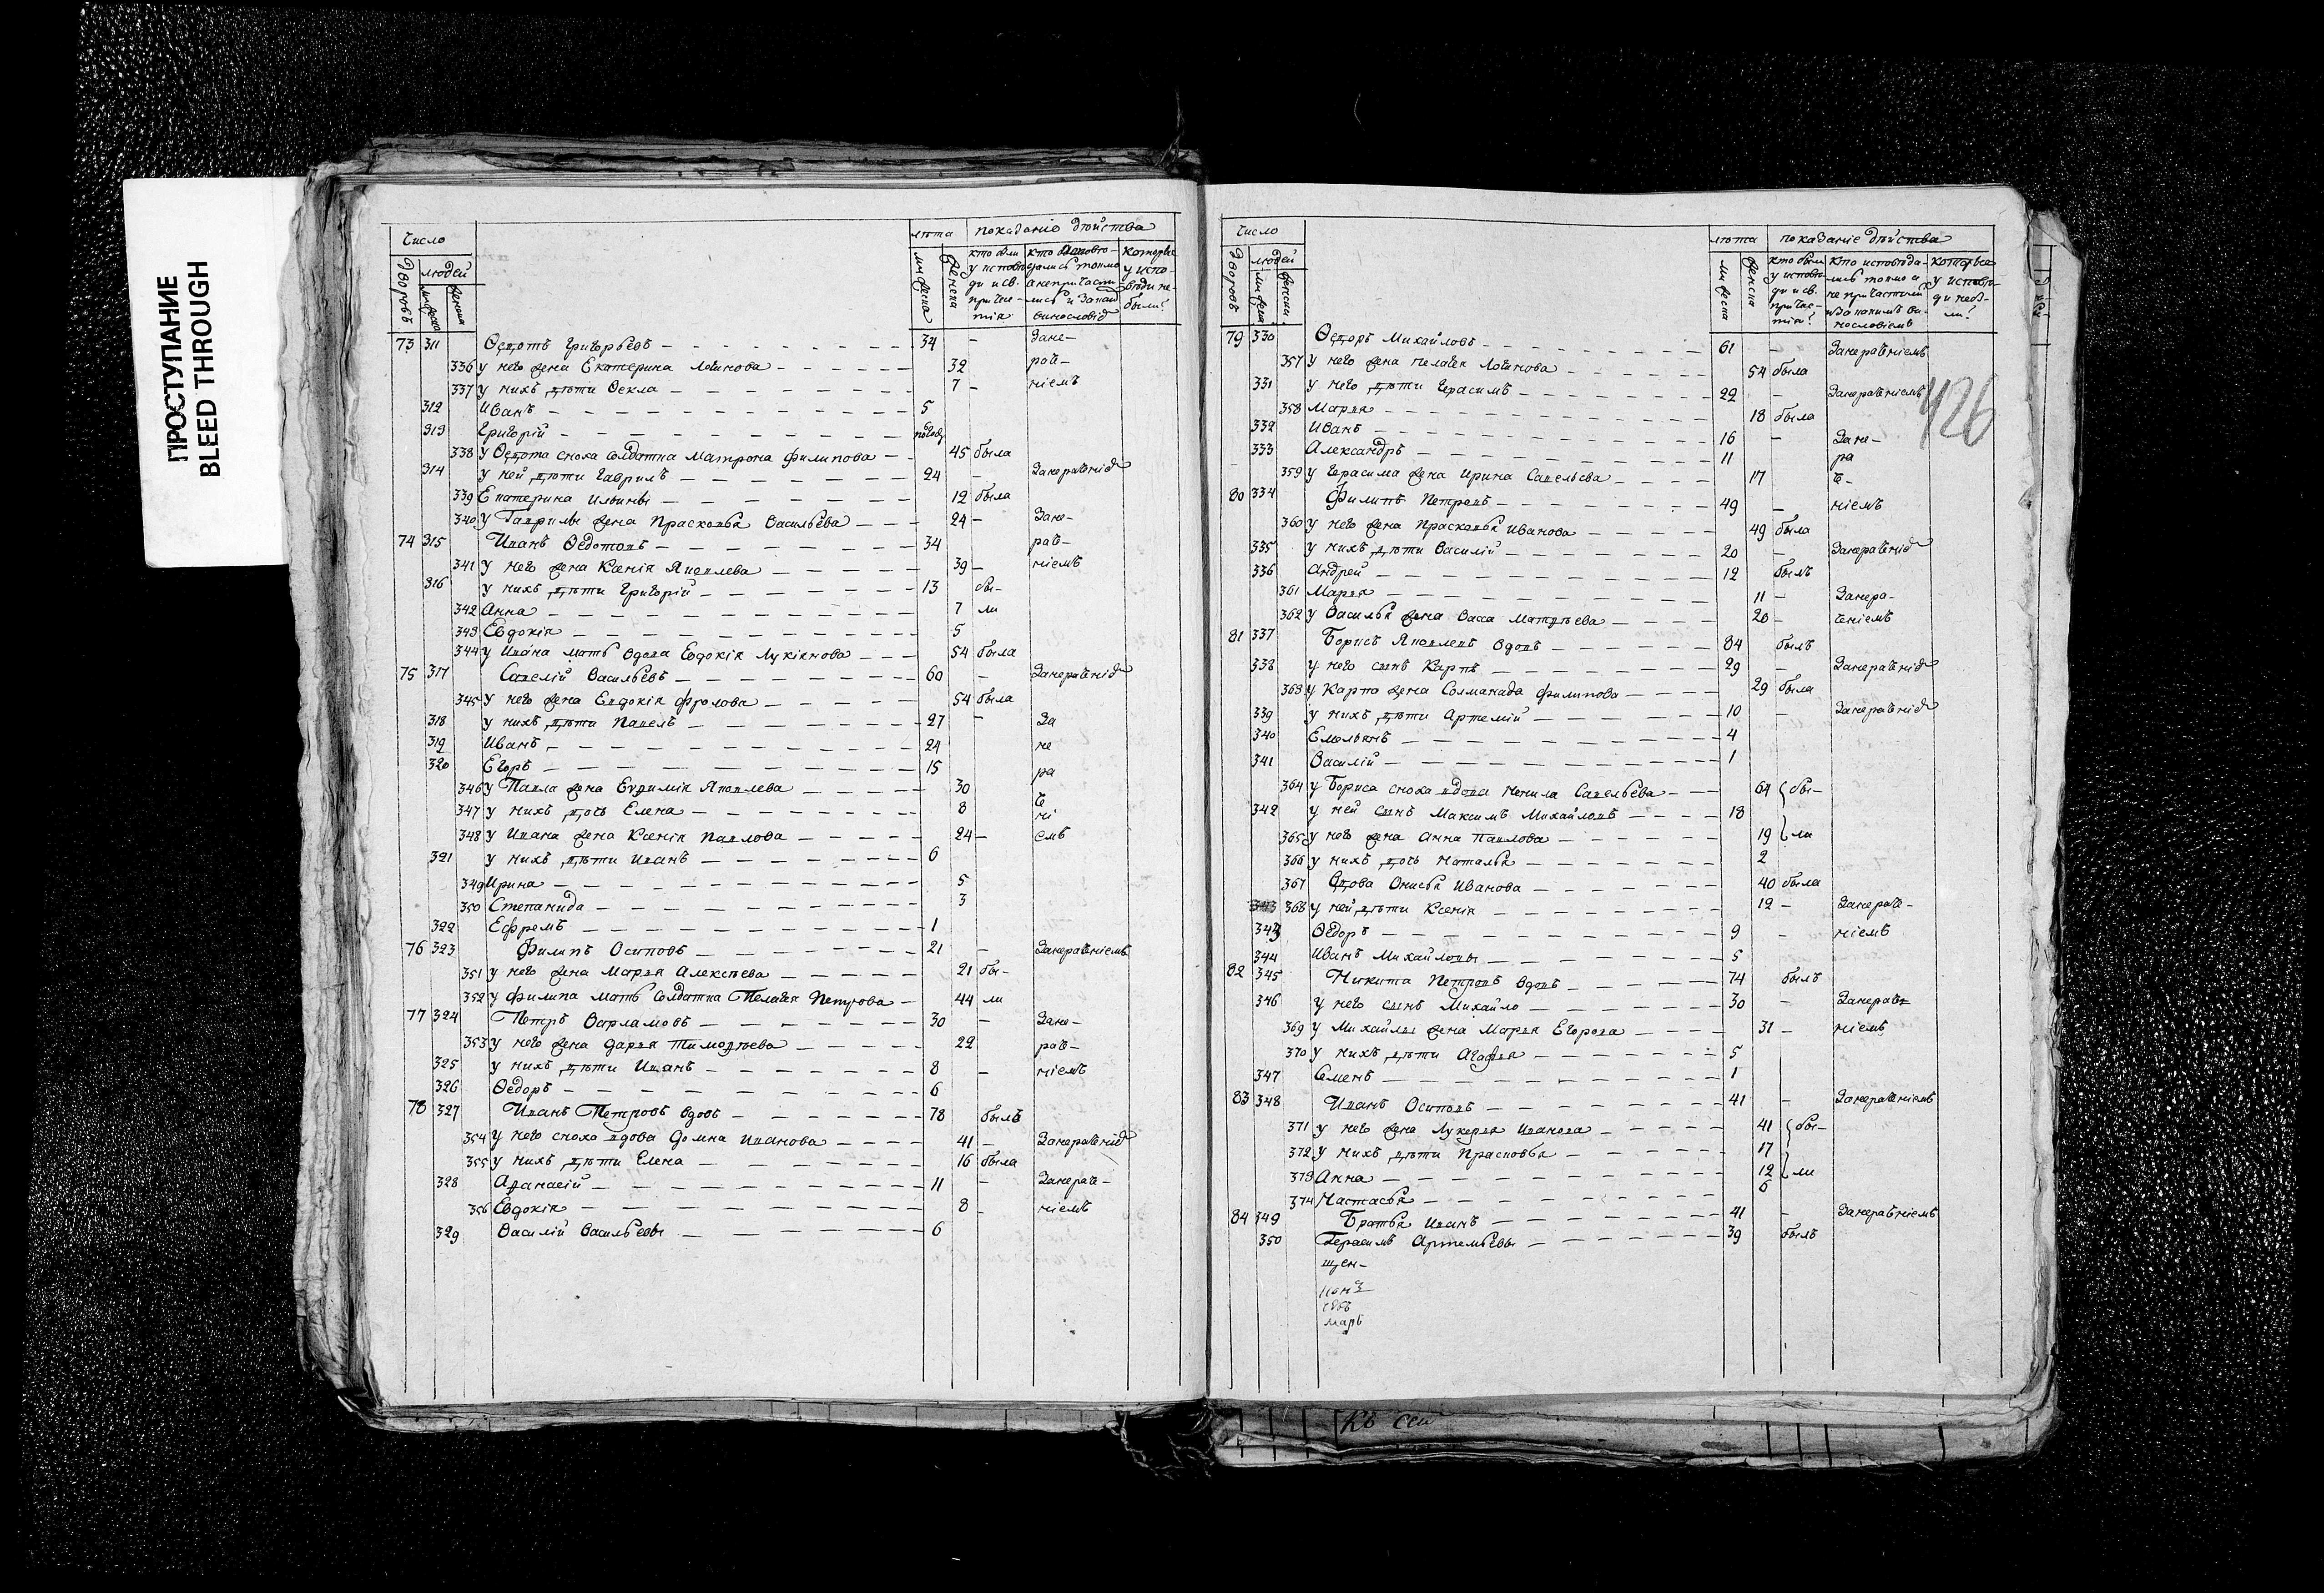 ПРОСТУПАНИЕ
BLEED THROUGH
Число лѣта показаніе дѣйства
Дворовъ людей мужеска женска мужеска женска
73 311 Ѳедотъ Григорьевъ 34 - Зане-
336 у него жена Екатерина Логинова 32 раче-
337 у нихъ дѣти Ѳекла 7 - ніемъ
312 Иванъ 5
313 Григорій полгод
338 у Ѳедота сноха солдатка Матрона Филипова 45 была
314 у ней дѣти Гаврилъ 24 - Занерачені
339 Екатерина Ильины 12 была
340 у Гаврилы жена Прасковья Васильева 24 - Зане-
74 315 Иванъ Ѳедотовъ 34 раче-
341 у него жена Ксенія Яковлева 39 - ніемъ
316 у нихъ дѣти Григорій 13 бы-
342 Анна 7 ли
343 Евдокія 5
344 у Ивана мать вдова Евдокія Лукіянова 54 была
75 317 Савелій Васильевъ 60 - Занерачені
345 у него жена Евдокія Фролова 54 была
318 у нихъ дѣти Павелъ 27 - За
319 Иванъ 24 не
320 Егоръ 15 ра
346 у Павла жена Евфимія Яковлева 30 че
347 у нихъ дочь Елена 8 ні
348 у Ивана жена Ксенія Павлова 24 - емъ
321 у нихъ дѣти Иванъ 6
349 Ирина 5
350 Степанида 3
322 Ефремъ 1
76 323 Филипъ Осиповъ 21 - Занераченіемъ
351 у него жена Марья Алексѣева 21 бы-
352 у Филипа мать солдатка Пелагея Петрова 44 ли
77 324 Петръ Варламовъ 30 - Зане-
353 у него жена Дарья Тимофѣева 22 раче-
325 у нихъ дѣти Иванъ 8 - ніемъ
326 Ѳедоръ 6
78 327 Иванъ Петровъ вдовъ 78 былъ
354 у него сноха вдова Домна Иванова 41 - Занерачені
355 у нихъ дѣти Елена 16 была
328 Афанасій 11 - Занераче-
356 Евдокія 8 - ніемъ
329 Василій Васильевы 6
Число лѣта показаніе дѣйства
Дворовъ людей мужеска женска мужеска женска
кто были у исповѣди и св. причастія?
кто исповѣдались токмо а не причастились и за какимъ винословіемъ
которые у исповѣди не были?
426
79 330 Ѳедоръ Михайловъ 61 - Занераченіемъ
357 у него жена Пелагея Логинова 54 была
331 у него дѣти Герасимъ 22 - Занераченіемъ
358 Марья 18 была
332 Иванъ 16 - Зане-
333 Александръ 11 ра
359 у Герасима жена Ирина Савельева 17 че-
80 334 Филипъ Петровъ 49 - ніемъ
360 у него жена Прасковья Иванова 49 была
335 у нихъ дѣти Василій 20 - Занерачені
336 Андрей 12 былъ
361 Марья 11 - Занера-
362 у Василья жена Васса Матвѣева 20 - ченіемъ
81 337 Борисъ Яковлевъ вдовъ 84 былъ
338 у него сынъ Карпъ 29 - Занерачені
363 у Карпа жена Соломанида Филипова 29 была
339 у нихъ дѣти Артемій 10 - Занерачені
340 Емельянъ 4
341 Василій 1
364 у Бориса сноха вдова Ненила Савельева 64 бы-
342 у ней сынъ Максимъ Михайловъ 18
365 у него жена Анна Павлова 19 ли
366 у нихъ дочь Наталья 2
367 Вдова Онисья Иванова 40 была
368 у ней дѣти Ксенія 12 - Занераче-
343 Ѳедоръ 9 - ніемъ
344 Иванъ Михайловы 5
82 345 Никита Петровъ вдовъ 74 былъ
346 у него сынъ Михайло 30 - Занераче
369 у Михайлы жена Марья Егорова 31 - ніемъ
370 у нихъ дѣти Агафья 5
347 Семенъ 1
83 348 Иванъ Осиповъ 41 - Занераченіемъ
371 у него жена Лукерья Иванова 41 бы-
372 у нихъ дѣти Прасковья 17
373 Анна 12 ли
374 Настасья 6
84 349 Братья Иванъ 41 - Занераченіемъ
350 Герасимъ Артемьевы 39 былъ
щен-
Къ Сен